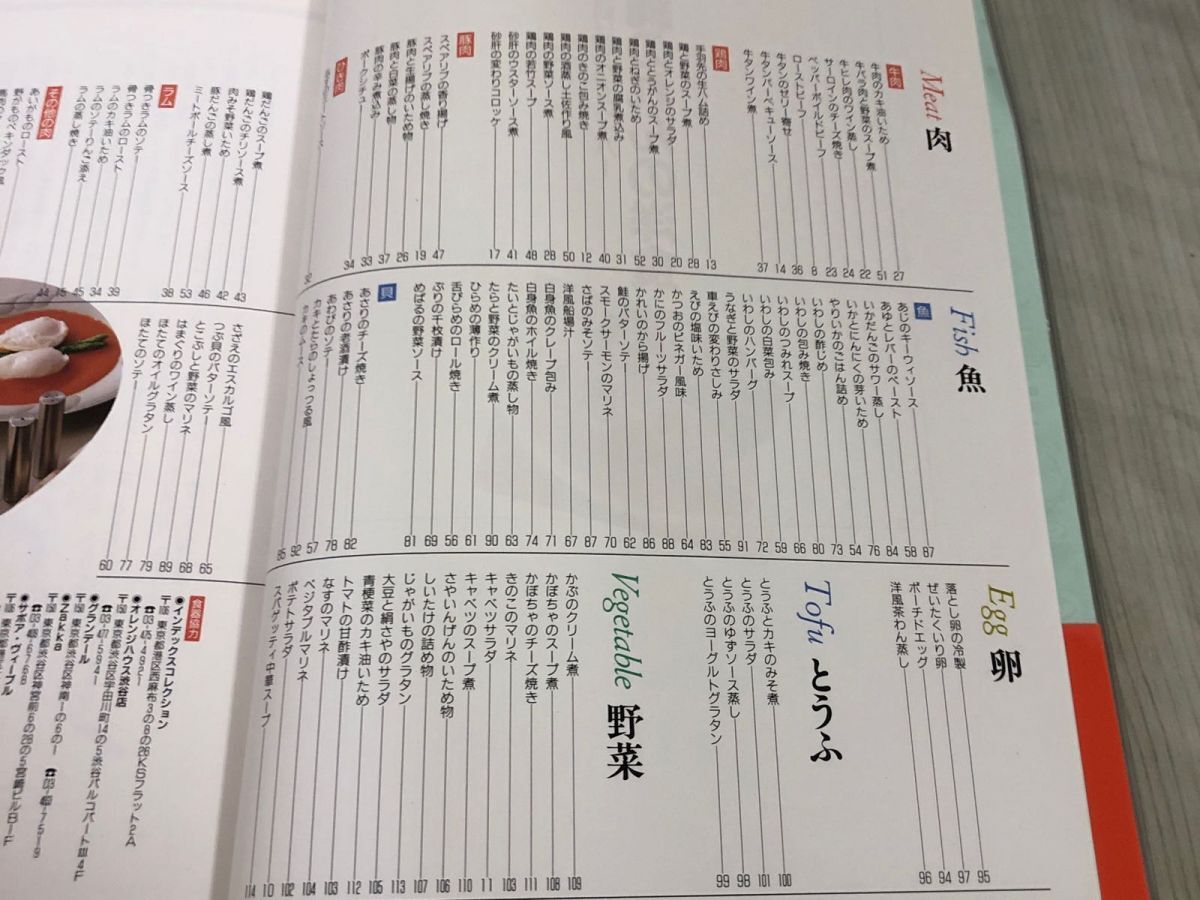 Meat 肉
牛肉
牛肉のカキ油いため 27
牛バラ肉と野菜のスープ煮 51
牛ヒレ肉のワイン蒸し 22
サーロインのチーズ焼き 24
ペッパーボイルドビーフ 23
ローストビーフ 8
牛タンのゼリー寄せ 36
牛タンバーベキューソース 14
牛タンワイン煮 37
鶏肉
手羽先の生ハム詰め 13
鶏と野菜のスープ煮 28
鶏肉とオレンジのサラダ 20
鶏肉ととうがんのスープ煮 30
鶏肉とねぎのいため 52
鶏肉と野菜の腐乳煮込み 31
鶏肉のオニオンスープ煮 40
鶏肉のきのこ包み焼き 12
鶏肉の酒蒸し土佐作り風 50
鶏肉の野菜ソース煮 28
鶏肉の若竹スープ 48
砂肝のウスターソース煮 41
砂肝の変わりコロッケ 17
豚肉
スペアリブの香り揚げ 47
スペアリブの蒸し焼き 19
豚肉と生揚げのいため物 26
豚肉と白菜の蒸し物 37
豚肉の辛み煮込み 33
ポークシチュー 34
ひき肉
鶏だんごのスープ煮 43
鶏だんごのチリソース煮 42
肉みそ野菜いため 46
豚だんごの蒸し煮 53
ミートボールチーズソース 38
ラム
骨つきラムのソテー 39
骨つきラムのロースト 34
ラムのカキ油いため 45
ラムのソテーりんご添え
ラムの蒸し焼き 44
その他の肉
あいがものロースト
野がものペキンダック風
Fish 魚
魚
あじのキーウィソース 87
あゆとレバーのペースト 58
いかだんごのサワー蒸し 84
いかとにんにくの芽いため 76
やりいかのごはん詰め 54
いわしの酢じめ 73
いわしの包み焼き 80
いわしのつみれスープ 66
いわしの白菜包み 59
いわしのハンバーグ 72
うなぎと野菜のサラダ 91
車えびの変わりさしみ 55
えびの塩味いため 83
かつおのビネガー風味 64
かにのフルーツサラダ 88
かれいのから揚げ 86
鮭のバターソテー 62
スモークサーモンのマリネ 70
さばのみそソテー 87
洋風船場汁 67
白身魚のクレープ包み 71
白身魚のホイル焼き 74
たいとじゃがいもの蒸し物 63
たらと野菜のクリーム煮 90
ひらめの薄作り 61
舌びらめのロール焼き 56
ぶりの千枚漬け 69
めばるの野菜ソース 81
貝
あさりのチーズ焼き 82
あさりの老酒漬け 78
あわびのソテー 57
カキとたらのしょっつる風 92
カキのムース 85
さざえのエスカルゴ風 65
つぶ貝のバターソテー 68
とこぶしと野菜のマリネ 89
はまぐりのワイン蒸し 79
ほたてのオイルグラタン 77
ほたてのソテー 60
Egg 卵
落とし卵の冷製 95
ぜいたくいり卵 97
ポーチドエッグ 94
洋風茶わん蒸し 96
Tofu とうふ
とうふとカキのみそ煮 100
とうふのサラダ 101
とうふのゆずソース蒸し 98
とうふのヨーグルトグラタン 99
Vegetable 野菜
かぶのクリーム煮 109
かぼちゃのスープ煮 108
かぼちゃのチーズ焼き 111
きのこのマリネ 103
キャベツサラダ 11
キャベツのスープ煮 110
さやいんげんのいため物 106
しいたけの詰め物 107
じゃがいものグラタン 113
大豆と絹さやのサラダ 105
青梗菜のカキ油いため 112
トマトの甘酢漬け 103
なすのマリネ 104
ベジタブルマリネ 102
ポテトサラダ 10
スパゲッティ中華スープ 114
食器協力
●インデックスコレクション
東京都港区西麻布3の8の26KSフラット2A
●オレンジハウス渋谷店
東京都渋谷区宇田川町14の5渋谷パルコパートⅢ4F
●グランテール
東京都渋谷区神南1の6の1
●Zakka
東京都渋谷区神宮前6の28の5宮崎ビルB1F
●サボア・ヴィーブル